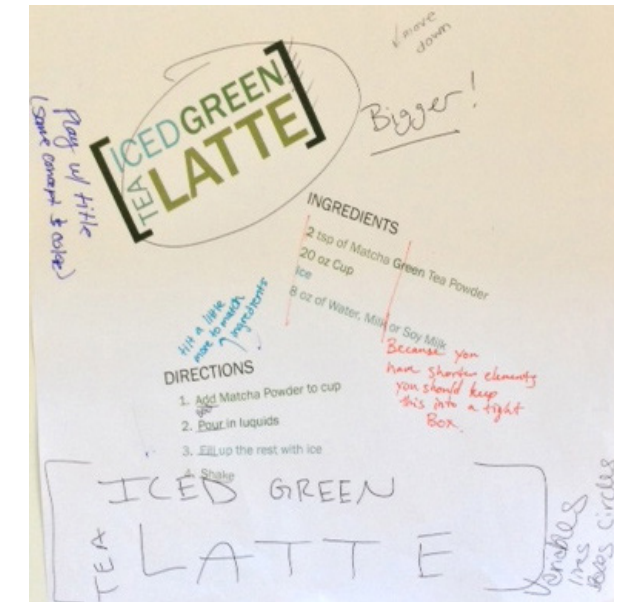 move
down
ICED GREEN
TEA LATTE
Bigger!
Play w/ title
(same concept & color)
INGREDIENTS
2 tsp of Matcha Green Tea Powder
20 oz Cup
Ice
8 oz of Water, Milk or Soy Milk
tilt a little
more to match
ingredients
Because you
have shorter elements
you should keep
this into a tight
Box.
DIRECTIONS
1. Add Matcha Powder to cup
2. Pour in luquids
3. Fill up the rest with ice
4. Shake
ICED GREEN
TEA LATTE
Variables
lines
boxes circles